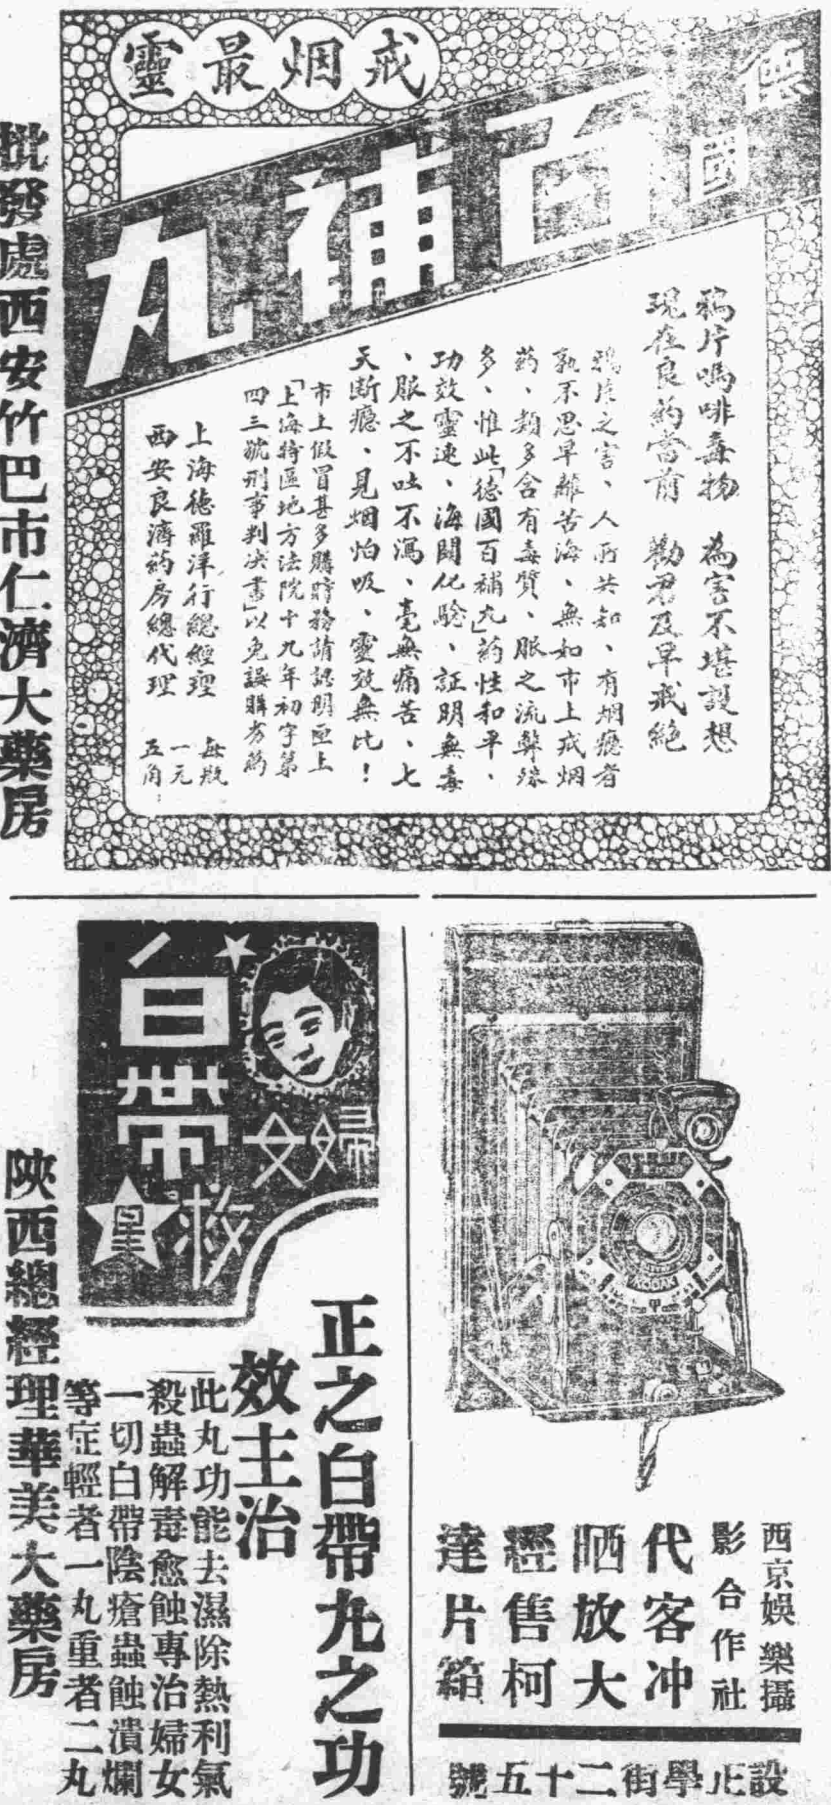 戒烟最靈
德國
百補丸
鴉片嗎啡毒物　為害不堪設想
現在良葯當前　勸君及早戒絕
鴉片之害、人所共知、有烟癮者
孰不思早離苦海、無如市上戒烟
葯、類多含有毒質、服之流弊殊
多、惟此「德國百補丸」葯性和平、
功效靈速、海關化驗、証明無毒
、服之不吐不瀉、毫無痛苦、七
天斷癮、見烟怕吸、靈效無比！
市上假冒甚多購時務請認明匣上
「上海特區地方法院十九年初字第
四三號刑事判決書」以免誤購為荷
上海德羅洋行總經理
西安良濟葯房總代理
每瓶
一元
五角
批發處西安竹巴市仁濟大藥房
婦女
白帶
救星
正之白帶丸之功
效主治
此丸功能去濕除熱利氣
殺蟲解毒愈蝕專治婦女
一切白帶陰瘡蟲蝕潰爛
等症輕者一丸重者二丸
陝西總經理華美大藥房
KODAK
西京娛樂攝
影合作社
代客冲
晒放大
經售柯
達片箱
設正學街二十五號